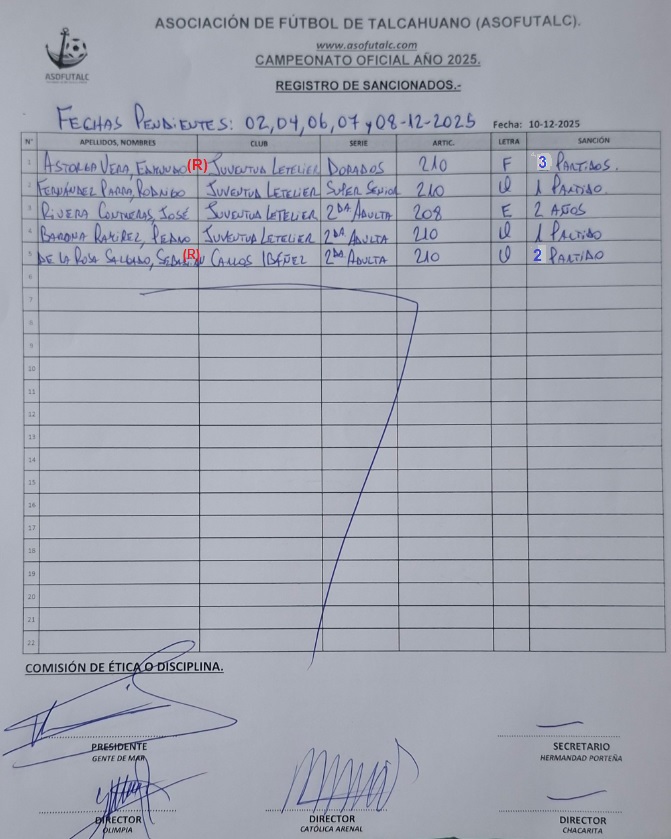 ASOCIACIÓN DE FÚTBOL DE TALCAHUANO (ASOFUTALC).
www.asofutalc.com
ASOFUTALC
CAMPEONATO OFICIAL AÑO 2025.
REGISTRO DE SANCIONADOS.-
FECHAS PENDIENTES: 02,04,06,07 y 08-12-2025 Fecha: 10-12-2025
N° APELLIDOS, NOMBRES CLUB SERIE ARTIC. LETRA SANCIÓN
1 ASTORGA VERA, EDMUNDO (R) JUVENTUD LETELIER DORADOS 210 F 3 PARTIDOS.
2 FERNÁNDEZ PARRA, RODRIGO JUVENTUD LETELIER SUPER SENIOR 210 1 PARTIDO.
3 RIVERA CONTRERAS, JOSÉ JUVENTUD LETELIER 2DA ADULTA 208 E 2 AÑOS
4 BARONA RAMIREZ, PEDRO JUVENTUD LETELIER 2DA ADULTA 210 1 PARTIDO
5 DE LA ROSA SALGADO, (R) CARLOS IBÁÑEZ 2DA ADULTA 210 2 PARTIDO
6
7
8
9
10
11
12
13
14
15
16
17
18
19
20
21
22
COMISIÓN DE ÉTICA O DISCIPLINA.
PRESIDENTE SECRETARIO
GENTE DE MAR HERMANDAD PORTEÑA
DIRECTOR DIRECTOR DIRECTOR
OLIMPIA CATÓLICA ARENAL CHACARITA